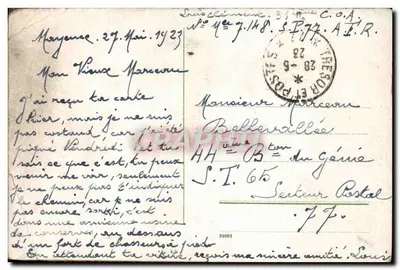 Louis Clément, 31ème C.O.A.
No Mle 7.148. S.P.77 A.F.R.
Mayence, 27 Mai, 1923
Mon Vieux Marceau
J'ai reçu ta carte
Hier, mais je ne suis
pas costaud, car j'ai été
piqué Vendredi et tu
sais ce que c'est, tu peux
venir me voir, seulement
je ne peux pas t'indiquer
le chemin, car je ne suis
pas encore sorti, c'est
dans une ancienne usine
de conserves, au dessous
d'un fort de chasseurs à pied
En attendant ta visite, reçois ma sincère amitié. Louis
TRESOR ET POSTES
28-5
23
Monsieur Marceau
Bellevallée
44ème Bton du Génie
S.T. 65
Secteur Postal
77.